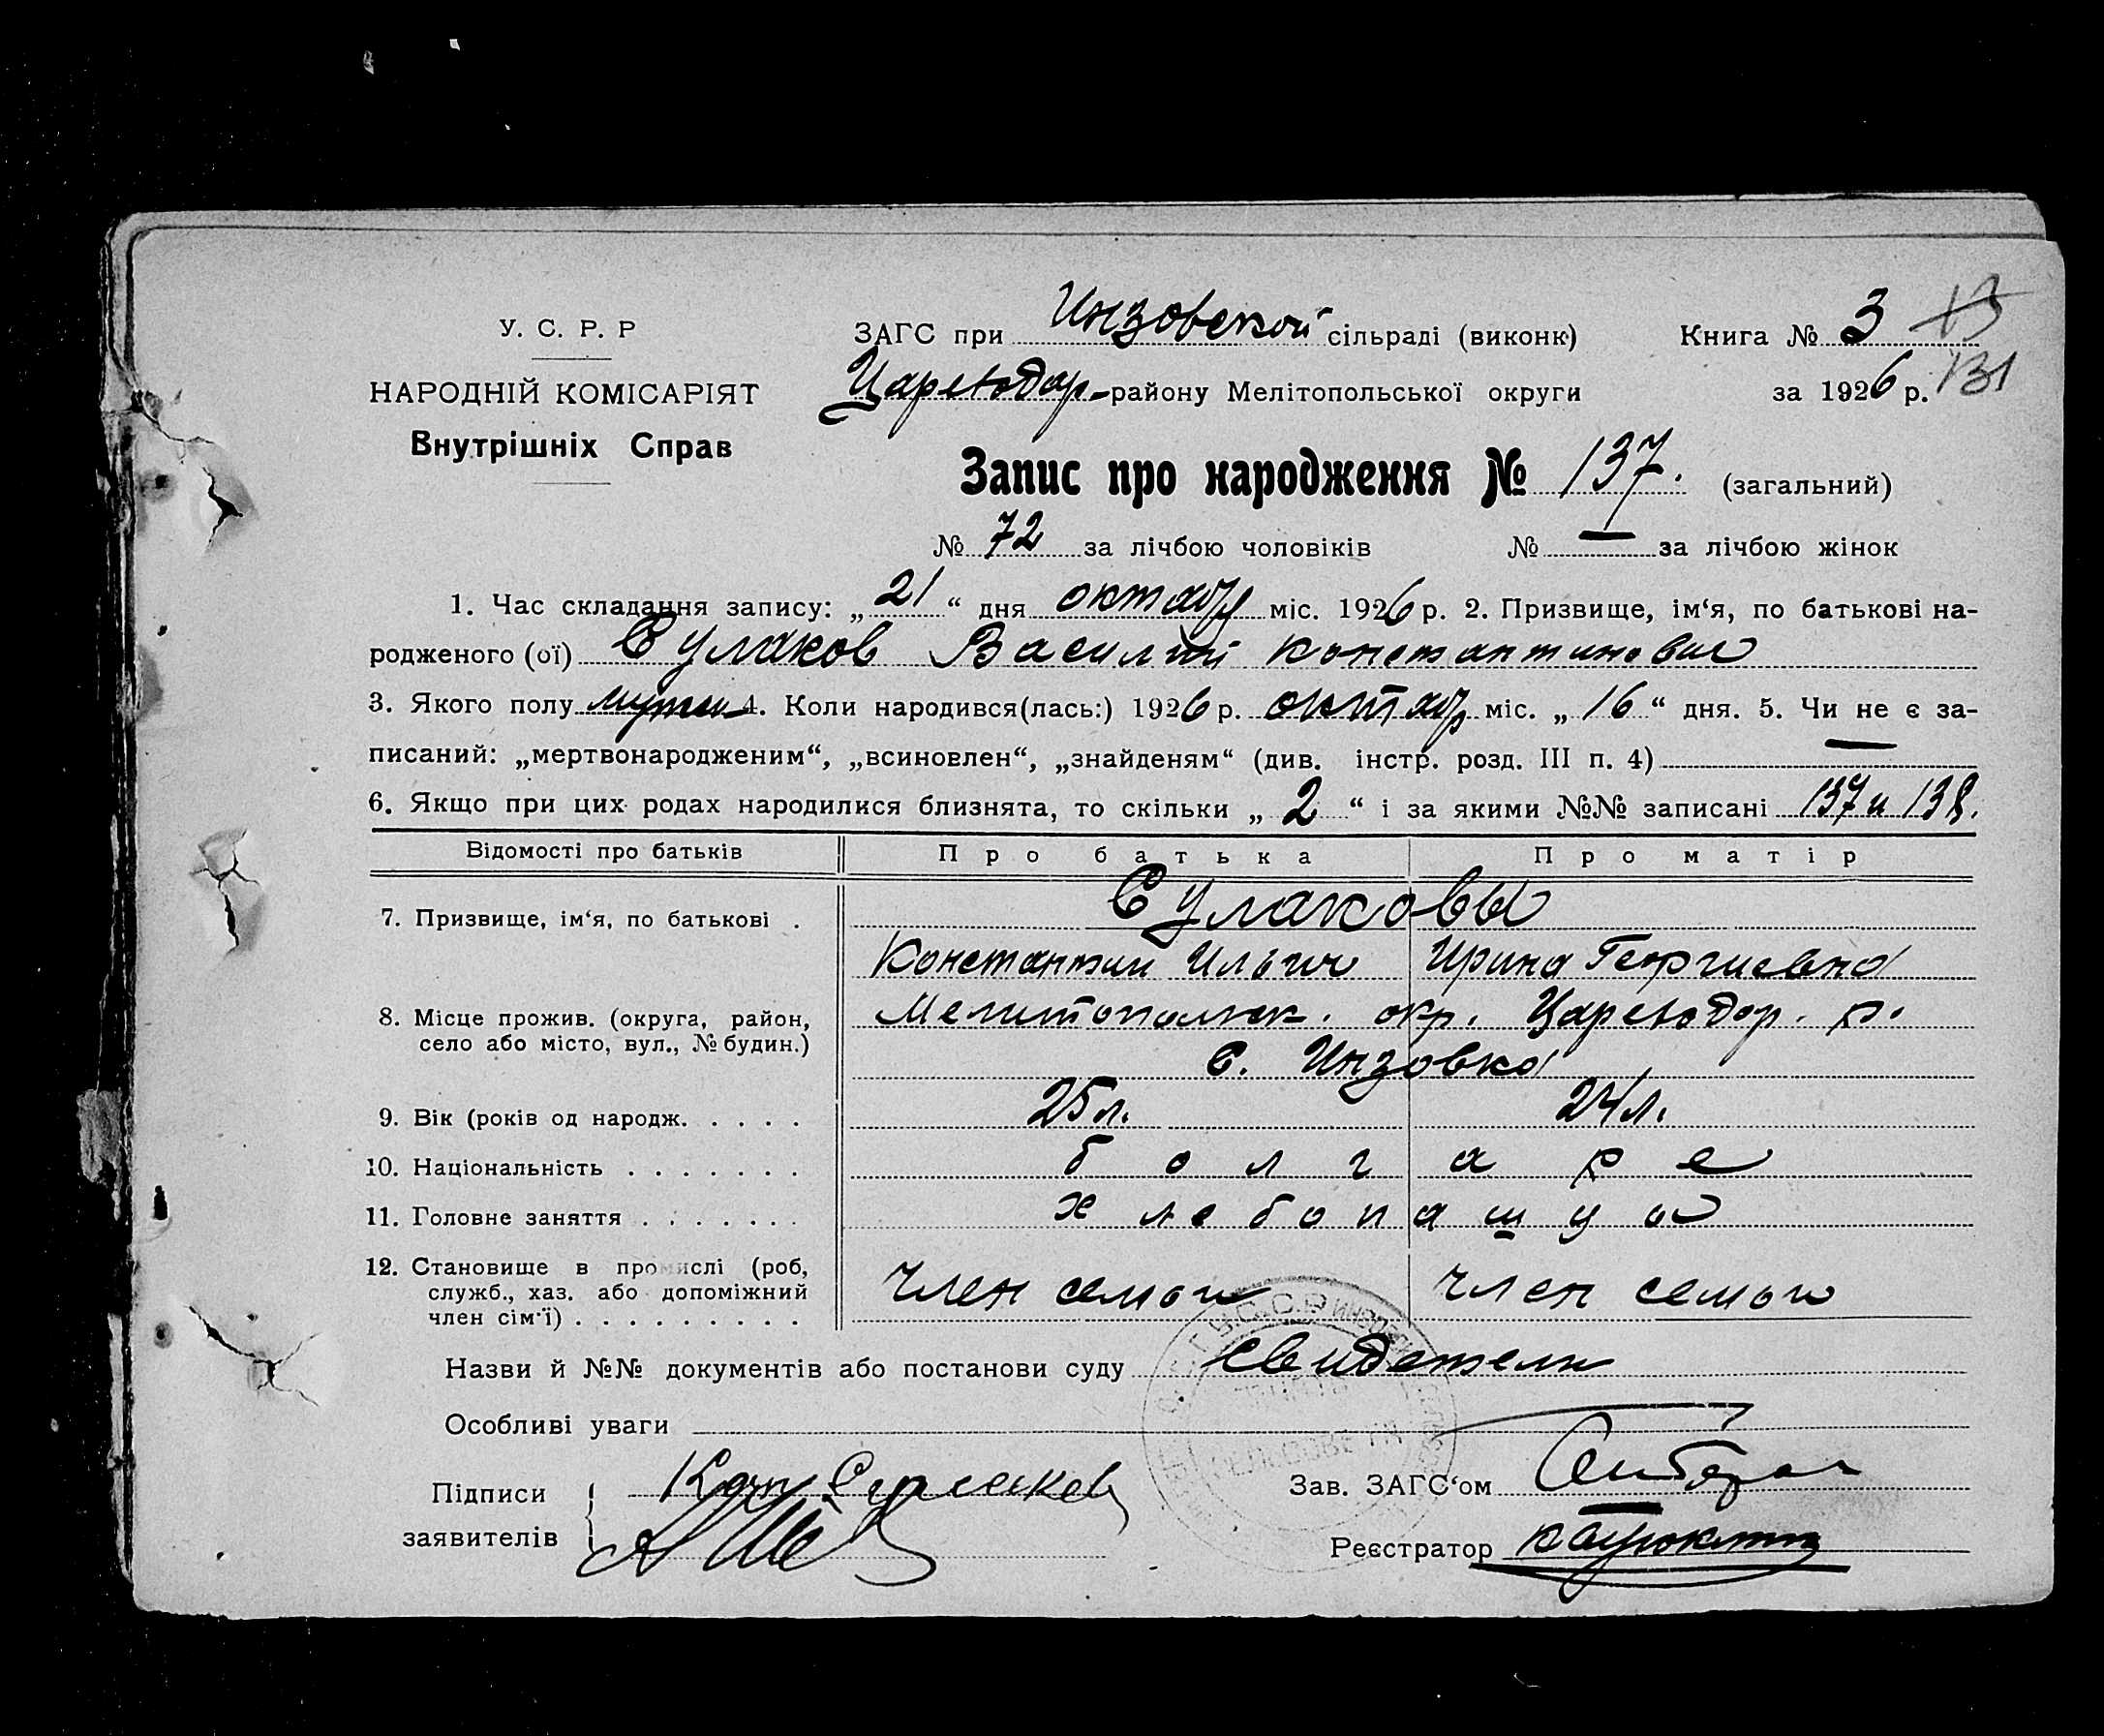 У. С. Р. Р
НАРОДНІЙ КОМІСАРІЯТ
Внутрішніх Справ
ЗАГС при Инзовской сільраді (виконк) Книга № 3 13
Цареводар- району Мелітопольської округи за 1926 р. 131
Запис про народження № 137. (загальний)
№ 72 за лічбою чоловіків № — за лічбою жінок
1. Час складання запису: „21“ дня октабр міс. 1926 р. 2. Призвище, ім‘я, по батькові на-
родженого (ої) Сулаков Василий Константинович
3. Якого полу мужск 4. Коли народився(лась:) 1926 р. октабр міс. „16“ дня. 5. Чи не є за-
писаний: „мертвонародженим“, „всиновлен“, „знайденям“ (див. інстр. розд. III п. 4) —
6. Якщо при цих родах народилися близнята, то скільки „2“ і за якими №№ записані 137 и 138.
Відомості про батьків Про батька Про матір
7. Призвище, ім‘я, по батькові . Сулаковы
Константин Ильич Ирина Георгиевна
8. Місце прожив. (округа, район, Мелитопольск. окр. Цареводар. р.
село або місто, вул., № будин.) с. Инзовка
9. Вік (років од народж. . . . . 25 л. 24 л.
10. Національність . . . . . . . болгаре
11. Головне заняття . . . . . . . хлебопашцы
12. Становище в промислі (роб,
служб., хаз. або допоміжний член семьи член семьи
член сім‘ї) . . . . . . . . .
Назви й №№ документів або постанови суду свидетели
Особливі уваги
Підписи Кон Сулаков Зав. ЗАГС‘ом
заявителів Реєстратор